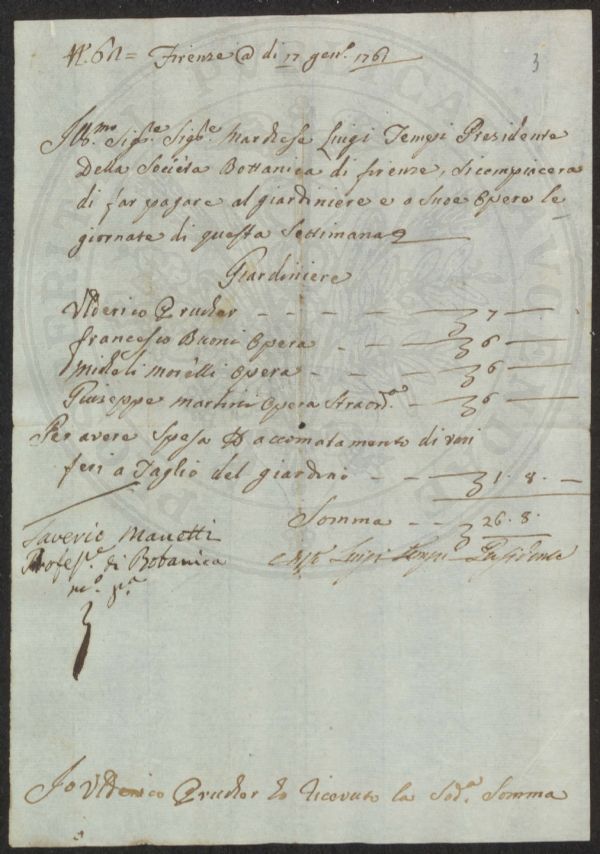 N.° 61 = Firenze @ di 17 gen.° 1761
3
Ill.mo Sig.re Sig.re Marchese Luigi Tempi Presidente
Della Società Bottanica di firenze, si compiacera
di far pagare al giardiniere e a sue Opere le
giornate di questa Settimana
Giardiniere
Ulderico Prucher - - - - 7 -
francesco Buoni Opera - - 6 -
Micheli Morelli Opera - - 6 -
Giuseppe Martini Opera Straord.a - 6 -
Per avere spesa accomatamento di vari
feri a Taglio del giardino - - - 1. 8. -
Somma - - 26. 8.
Saverio Manetti
Luigi Tempi Presidente
Profess.e di Botanica
m.o p.a
Io Ulderico Prucher ho ricevuto la Sod.a Somma